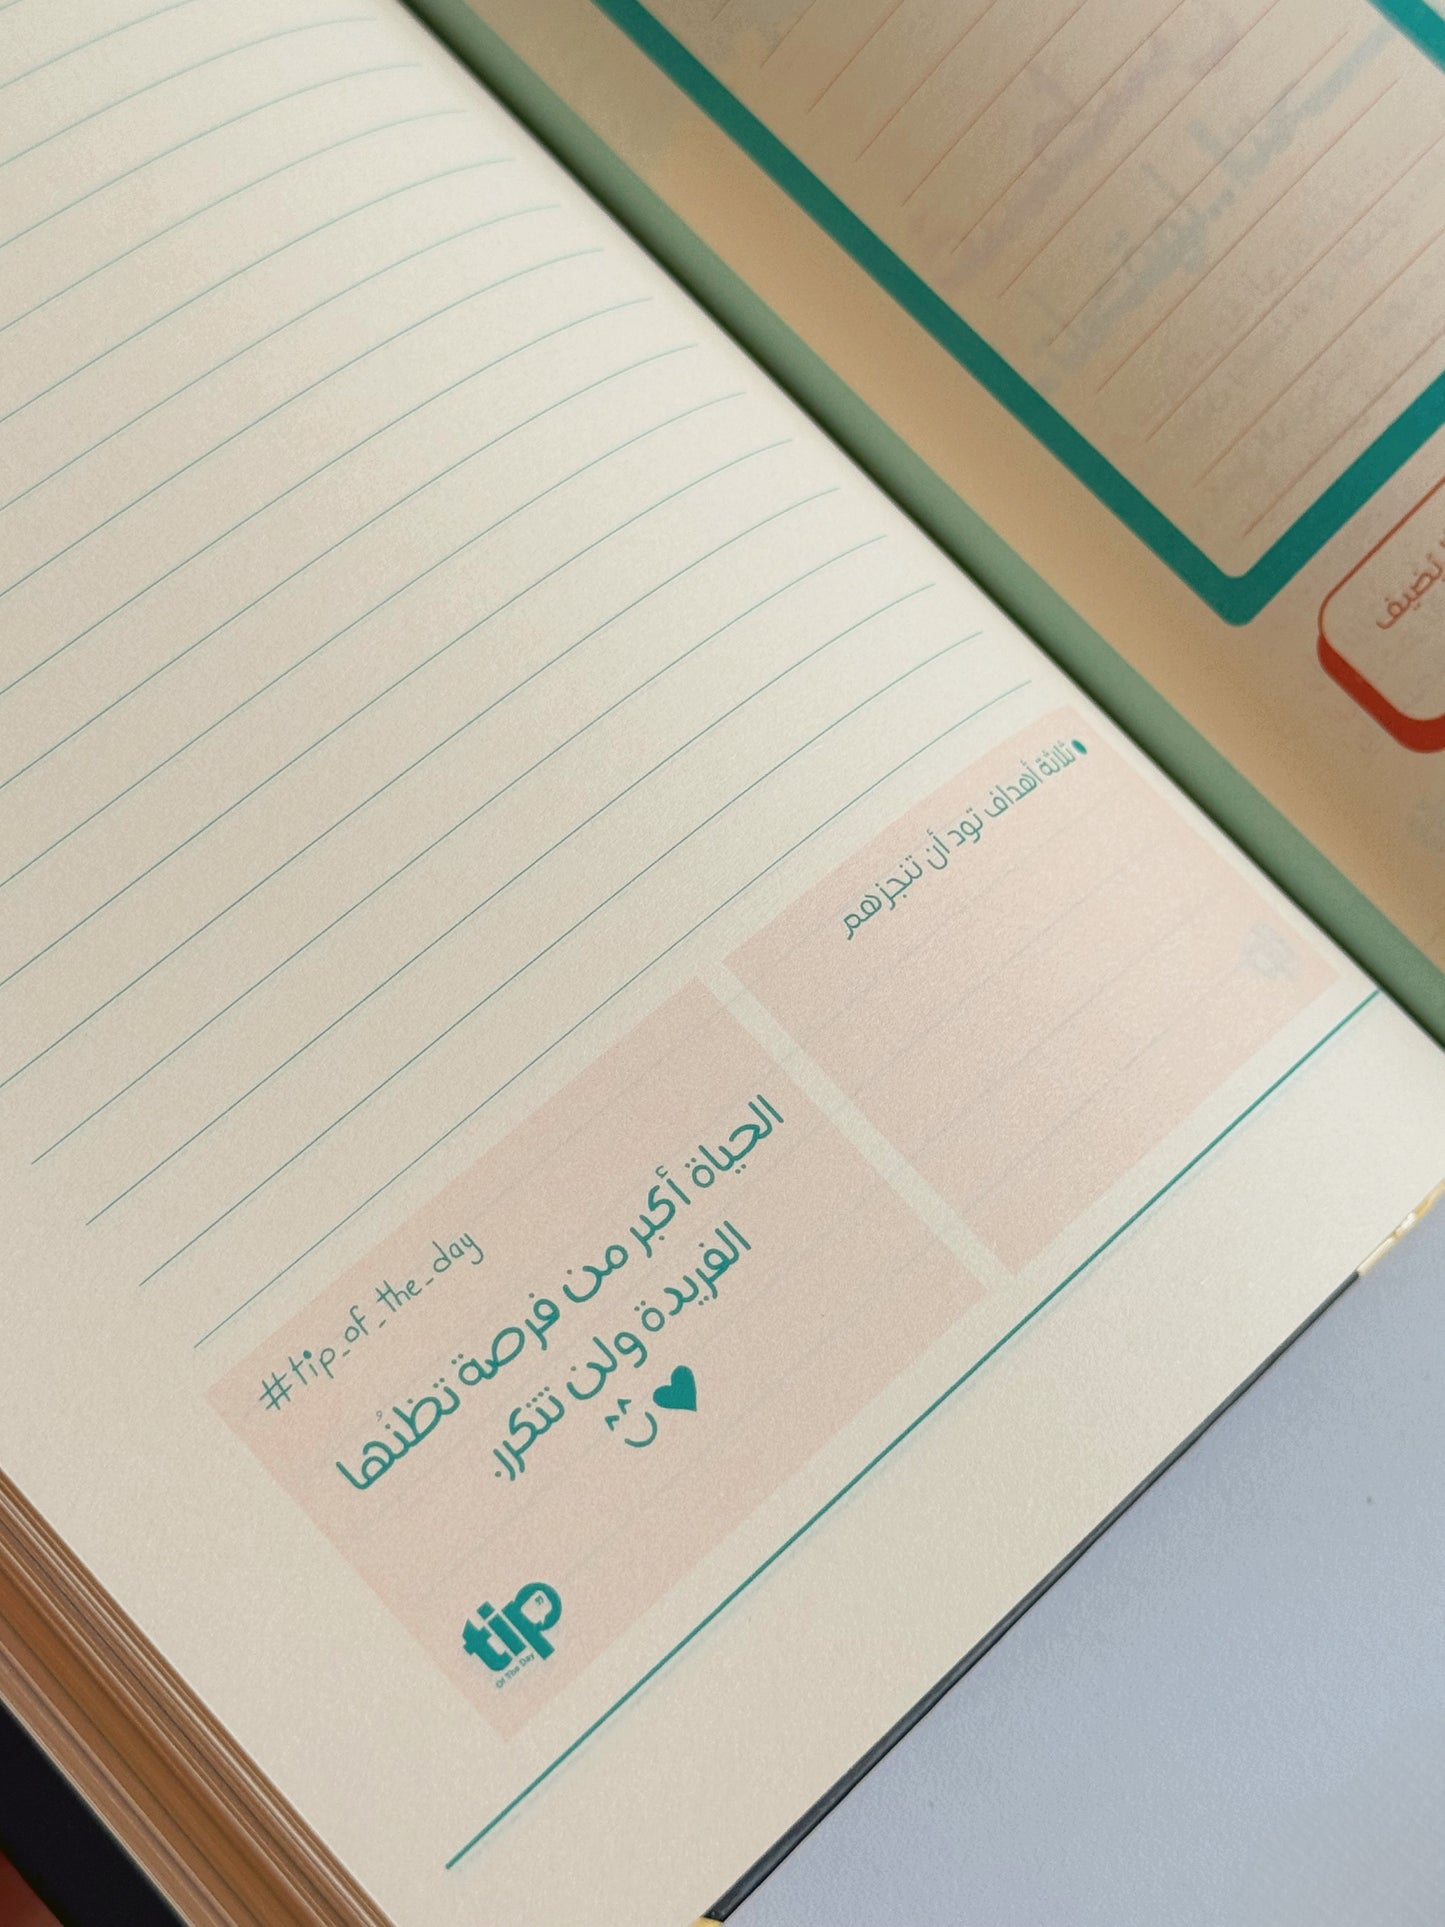 ثلاثة أهداف تود أن تنجزهم
#tip_of_the_day
الحياة أكبر من فرصة تظنُها
الفريدة ولن تتكرر.
tip
Of The Day
نضيف